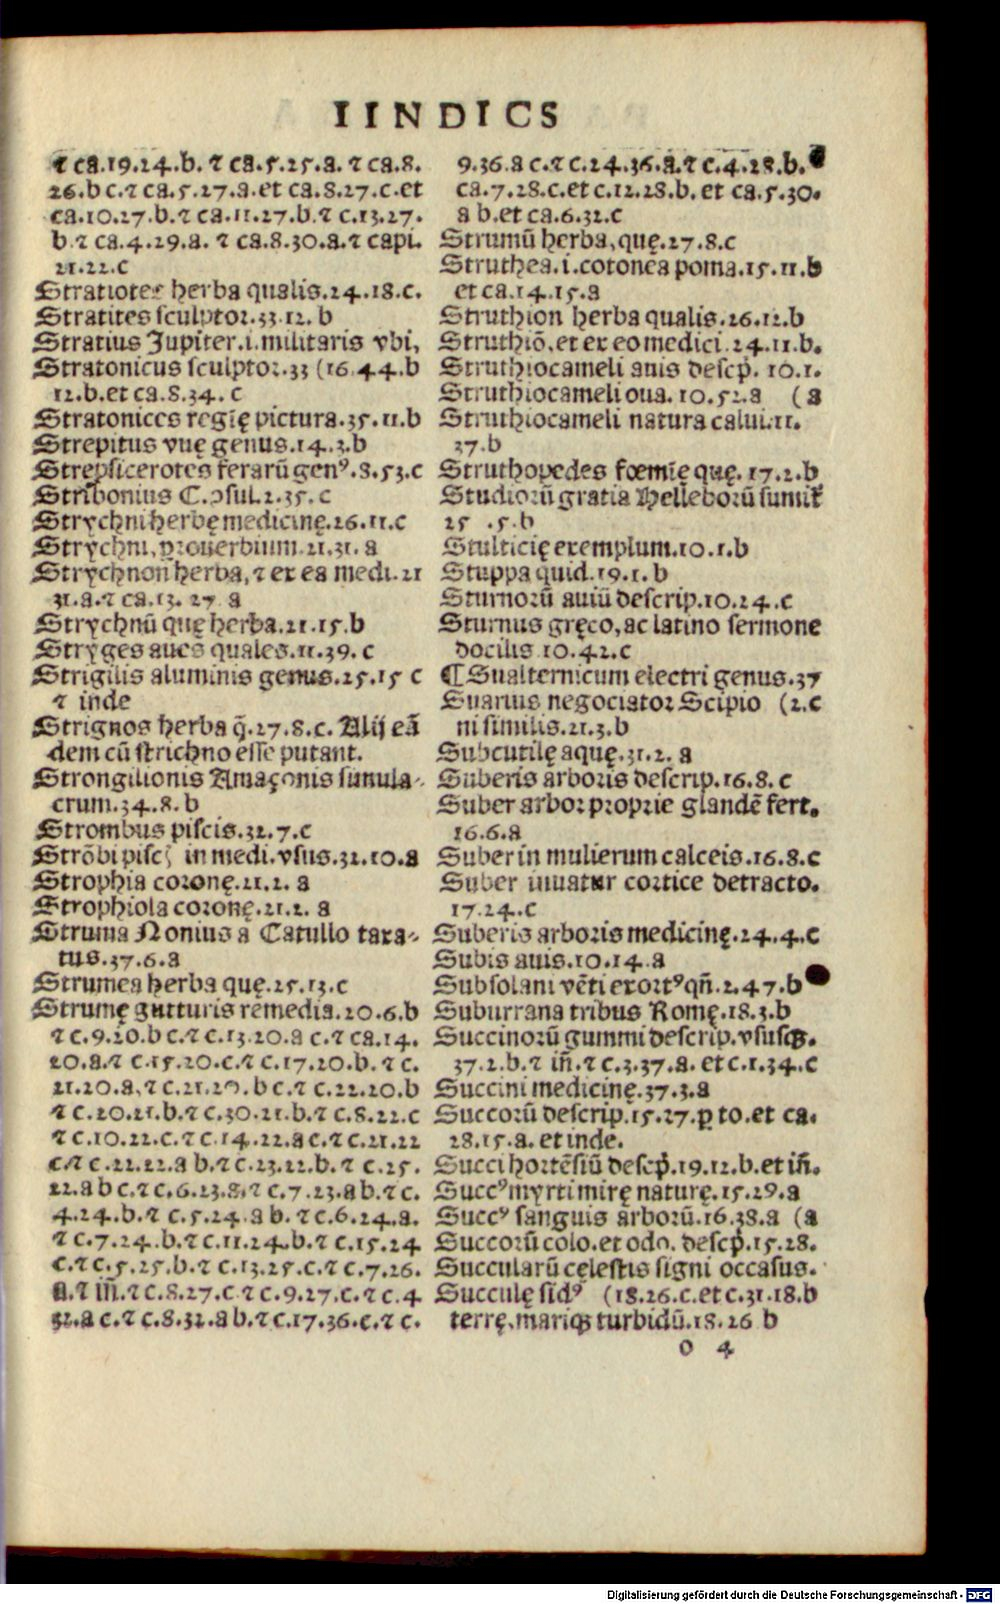 IINDICS
⁊ ca.19.24.b. ⁊ ca.5.25.a. ⁊ ca.8.
26.b c.⁊ ca.5.27.a.et ca.8.27.c.et
ca.10.27.b.⁊ ca.11.27.b.⁊ c.13.27.
b.⁊ ca.4.29.a. ⁊ ca.8.30.a.⁊ capi.
21.22.c
Stratiotes herba qualis.24.18.c.
Stratites sculptor.33.12. b
Stratius Jupiter.i.militaris vbi,
Stratonicus sculptor.33 (16.44.b
12.b.et ca.8.34. c
Stratonices regię pictura.35.11.b
Strepitus vuę genus.14.3.b
Strepsicerotes ferarū genꝰ.8.53.c
Stribonius C.ↄsul.2.35.c
Strychni herbę medicinę.26.11.c
Strychni, ꝓrouerbium.21.31. a
Strychnon herba, ⁊ ex ea medi.21
31.a.⁊ ca.13. 27 a
Strychnū quę herba.21.15.b
Stryges aues quales.11.39. c
Strigilis aluminis genus.25.15 c
⁊ inde
Strignos herba q̄.27.8.c. Alij eā
dem cū strichno esse putant.
Strongilionis Amaçonis simula⸗
crum.34.8. b
Strombus piscis.32.7.c
Strōbi pisc in medi.vsus.32.10.a
Strophia coronę.21.2. a
Strophiola coronę.21.2. a
Struma Nonius a Catullo taxa⸗
tus.37.6.a
Strumea herba quę.25.13.c
Strumę gutturis remedia.20.6.b
⁊ c.9.20.b c.⁊ c.13.20.a c.⁊ ca.14.
20.a.⁊ c.15.20.c.⁊ c.17.20.b. ⁊ c.
21.20.a,⁊ c.21.20.b c.⁊ c.22.20.b
⁊ c.20.21.b.⁊ c.30.21.b.⁊ c.8.22.c
⁊ c.10.22.c.⁊ c.14.22.a c.⁊ c.21.22
c.⁊ c.22.22.a b.⁊ c.23.22.b.⁊ c.25.
22.a b c.⁊ c.6.23.8.⁊ c.7.23.a b.⁊ c.
4.24.b.⁊ c.5.24.a b. ⁊ c.6.24.a.
⁊ c.7.24.b.⁊ c.11.24.b.⁊ c.15.24
c.⁊ c.5.25.b.⁊ c.13.25.c.⁊ c.7.26.
a.⁊ in̄.⁊ c.8.27.c.⁊ c.9.27.c.⁊ c.4
32.a c.⁊ c.8.32.a b.⁊ c.17.36.c.⁊ c.
9.36.a c.⁊ c.24.36.a.⁊ c.4.28.b.
ca.7.28.c.et c.12.28.b. et ca.5.30.
a b.et ca.6.32.c
Strumū herba, quę.27.8.c
Struthea.i.cotonea poma.15.11.b
et ca.14.15.a
Struthion herba qualis.26.12.b
Struthiō,et ex eo medici.24.11.b.
Struthiocameli auis descp̄. 10.1.
Struthiocameli oua. 10.52.a (a
Struthiocameli natura calui.11.
37.b
Struthopedes fœmīę quę. 17.2.b
Studiorū gratia Helleborū sumit̄
25 .5.b
Stulticię exemplum.10.1.b
Stuppa quid.19.1. b
Sturnorū auiū descrip.10.24.c
Sturnus gręco, ac latino sermone
docilis.10.42.c
¶ Sualternicum electri genus.37
Suarius negociator Scipio (2.c
ni similis.21.3.b
Subcutilę aquę.31.2. a
Suberis arboris descrip.16.8. c
Suber arbor proprie glandē fert.
16.6.a
Suber in mulierum calceis.16.8.c
Suber iuuatur cortice detracto.
17.24.c
Suberis arboris medicinę.24.4.c
Subis auis.10.14.a
Subsolani vēti exortꝰ qn̄.2.47.b
Suburrana tribus Romę.18.3.b
Succinorū gummi descrip.vsusqȝ.
37.2.b.⁊ in̄.⁊ c.3.37.a. et c.1.34.c
Succini medicinę.37.3.a
Succorū descrip.15.27.ꝑ to.et ca.
28.15.a. et inde.
Succi hortēsiū descp̄.19.12.b.et in̄.
Succꝰ myrti mirę naturę.15.29.a
Succꝰ sanguis arborū.16.38.a (a
Succorū colo.et odo. descp̄.15.28.
Succularū cęlestis signi occasus.
Succulę sidꝰ (18.26.c.et c.31.18.b
terrę,mariqȝ turbidū.18.26 b
o 4
Digitalisierung gefördert durch die Deutsche Forschungsgemeinschaft - DFG